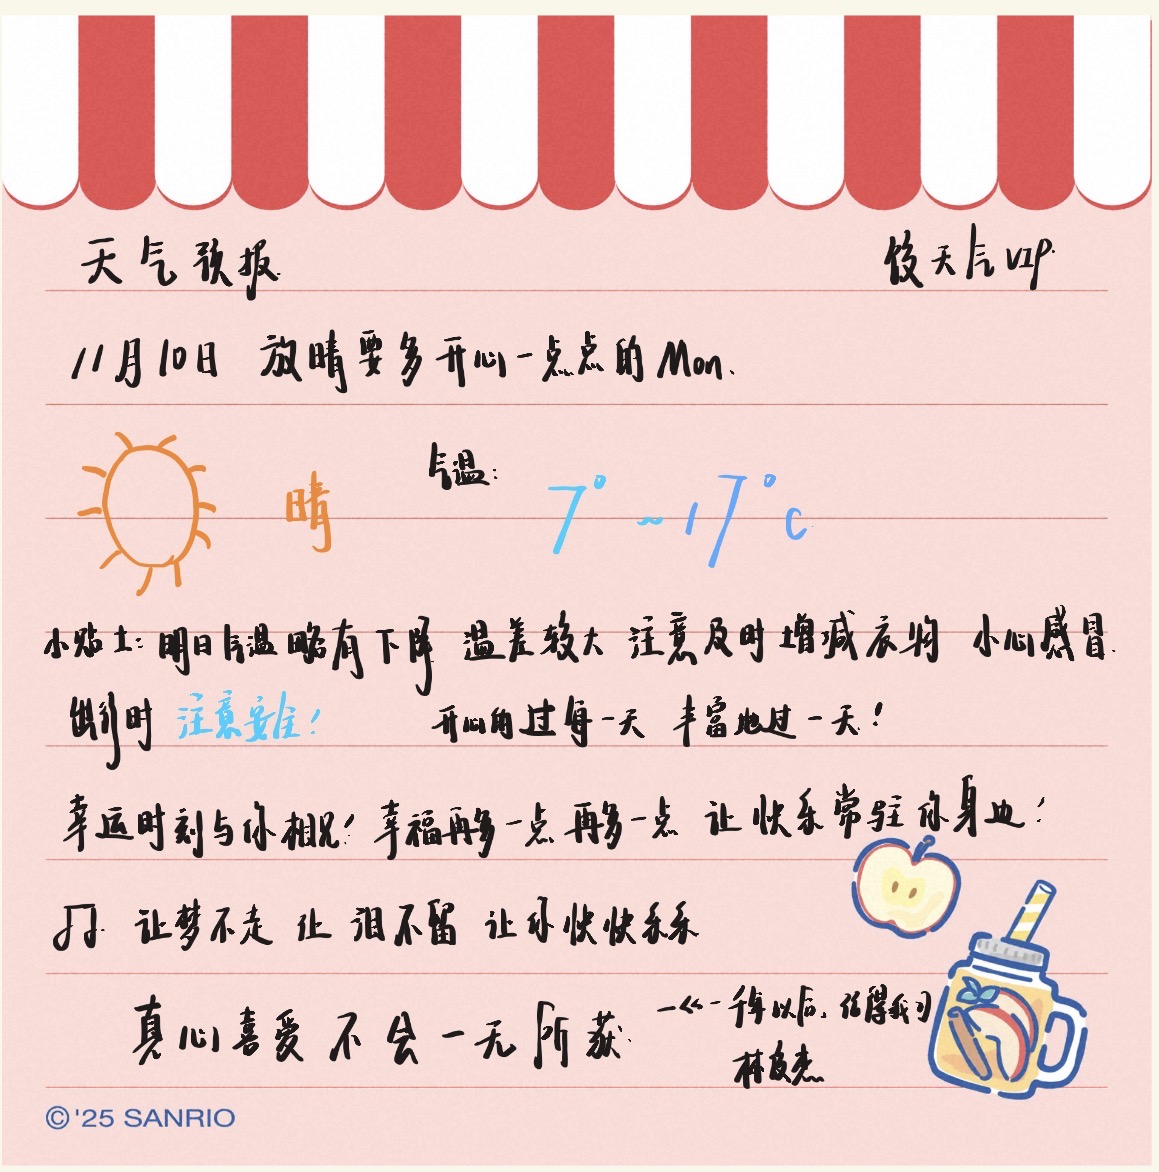 天气预报 天气VIP
11月10日 放晴要多开心一点点的Mon.
晴 气温: 7°~17°C
小贴士: 明日气温略有下降 温差较大 注意及时增减衣物 小心感冒
出行时 注意安全! 开心的过每一天 丰富地过一天!
幸运时刻与你相见! 幸福再多一点 再多一点 让快乐常驻你身边!
让梦不走 让泪不留 让你快快乐乐
真心喜爱不会一无所获
一千年以后
林俊杰
©'25 SANRIO